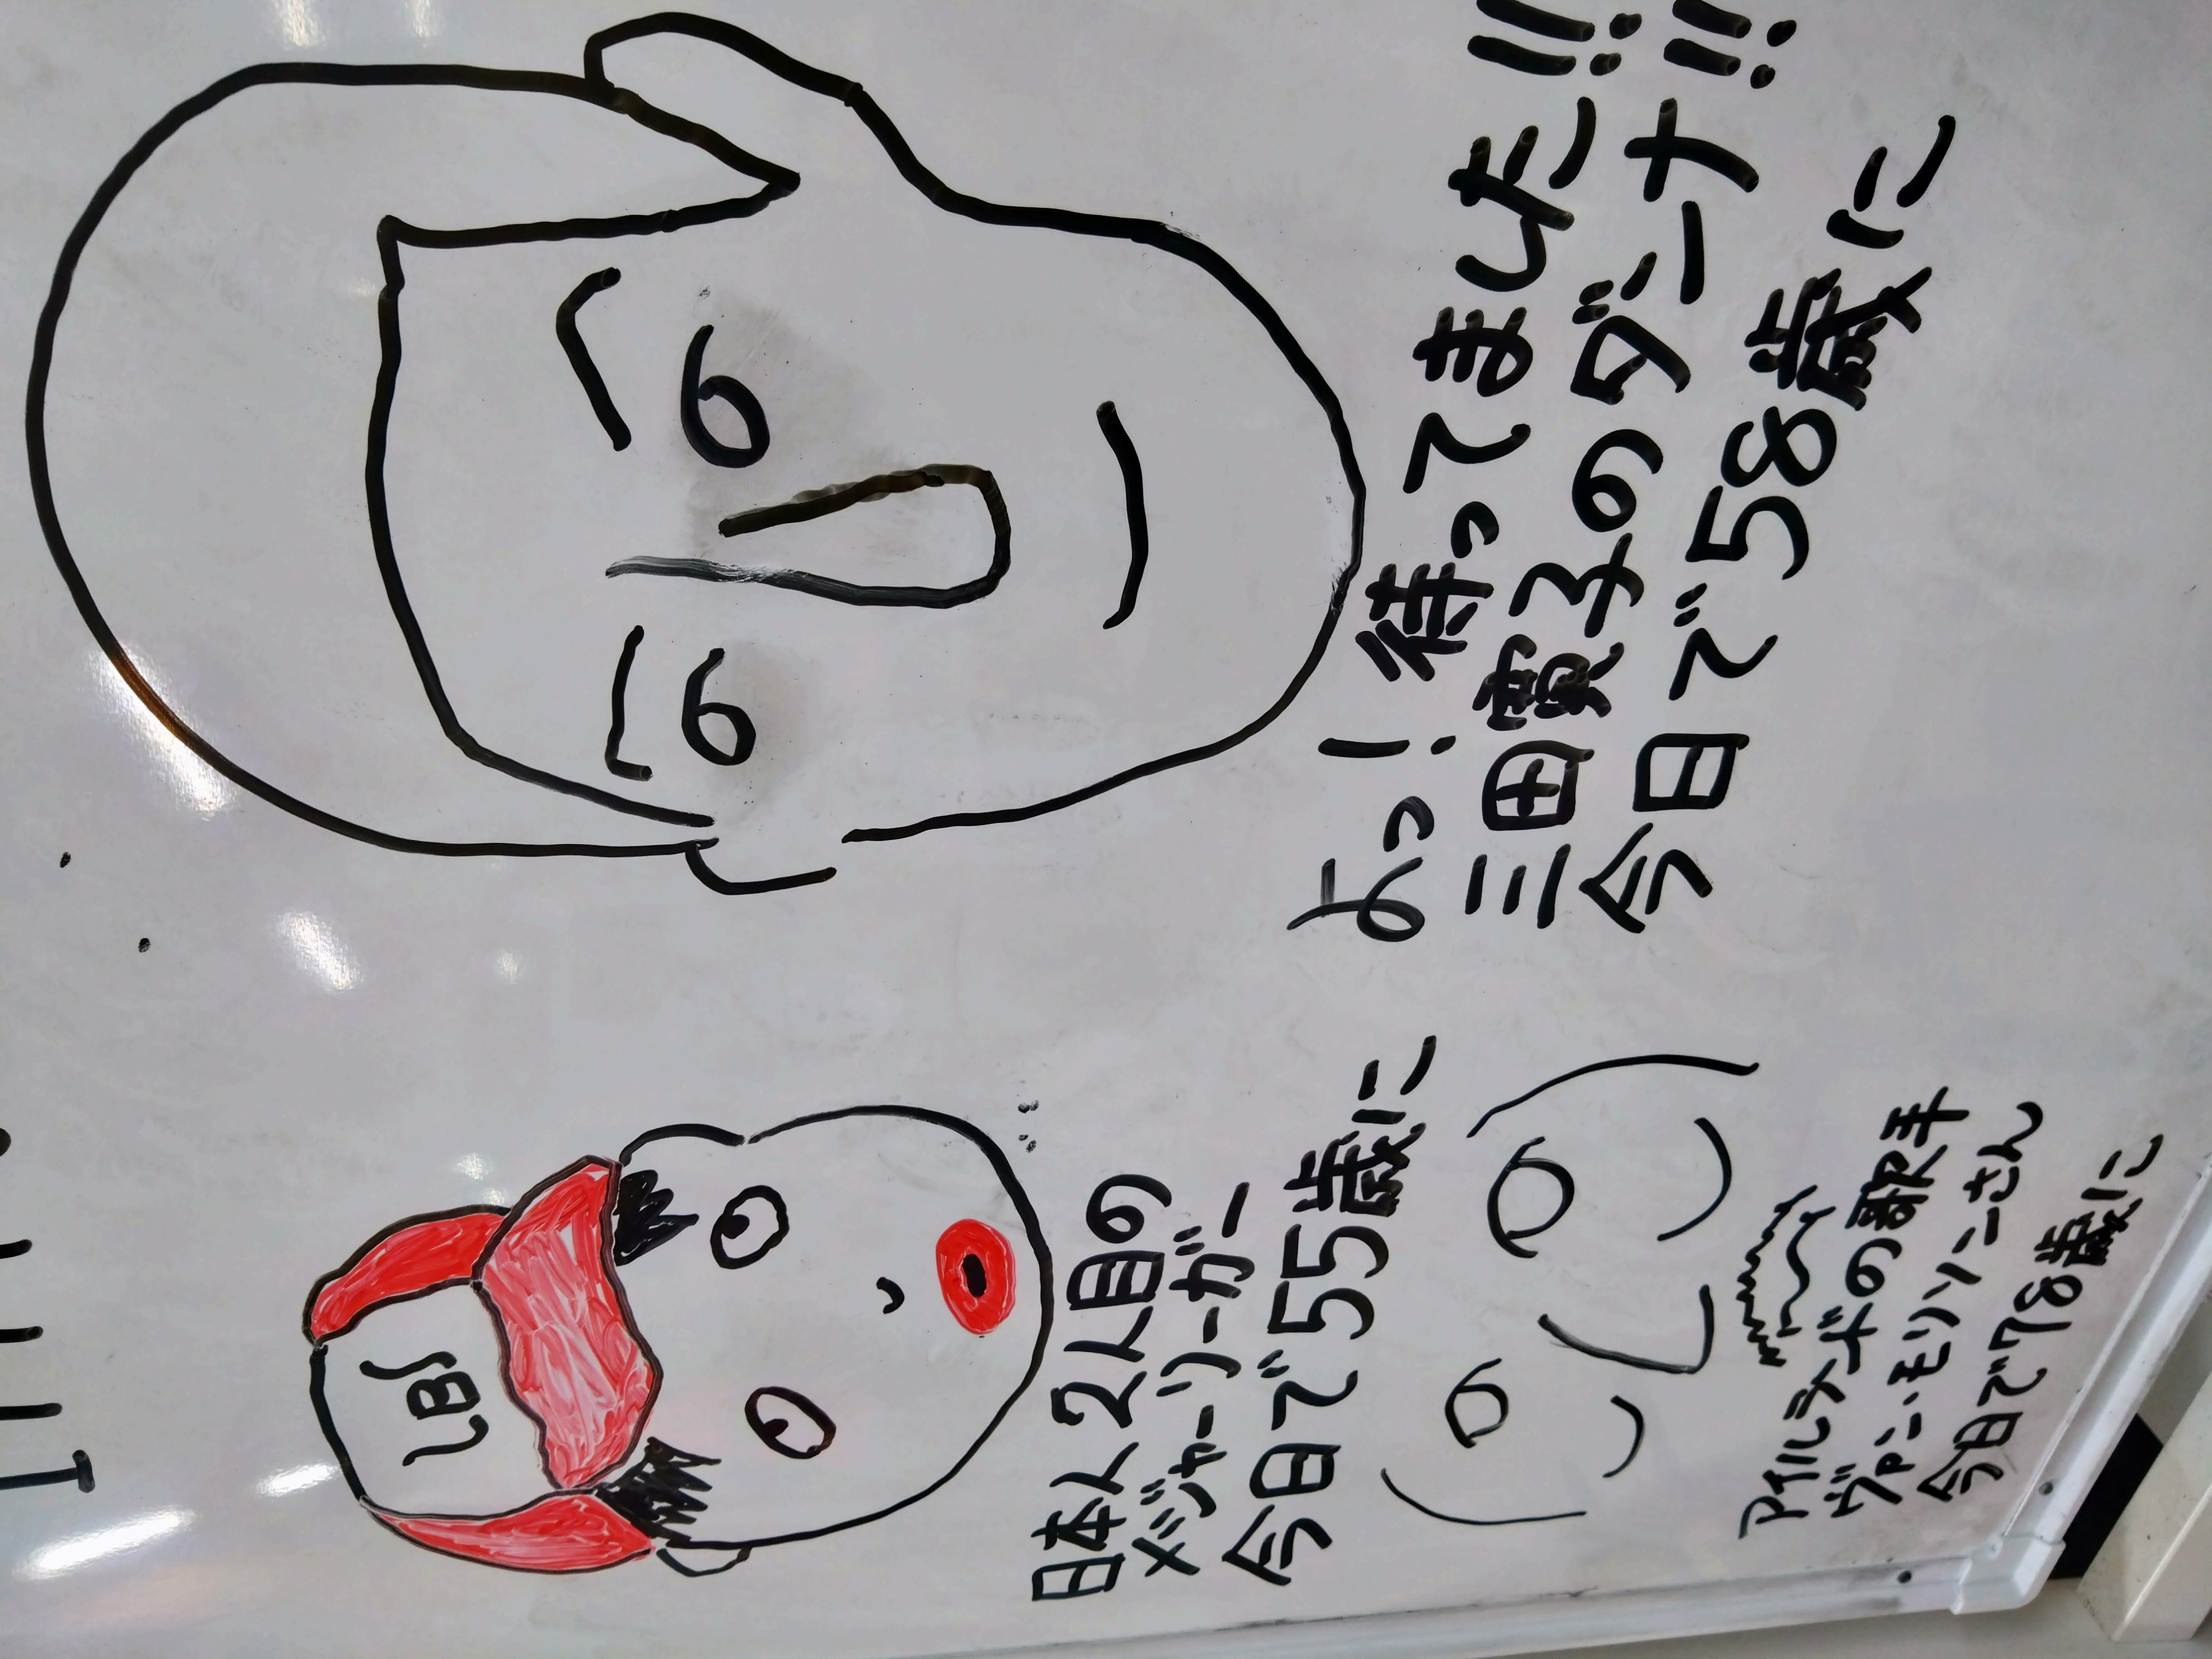 LBS
日本人2人目の
メジャーリーガー
今日で55歳に
アイルランドの歌手
ヴァン・モリソンさん
今日で78歳に
よっ!待ってました!!
三田寛子のダンナ!!
今日で58歳に